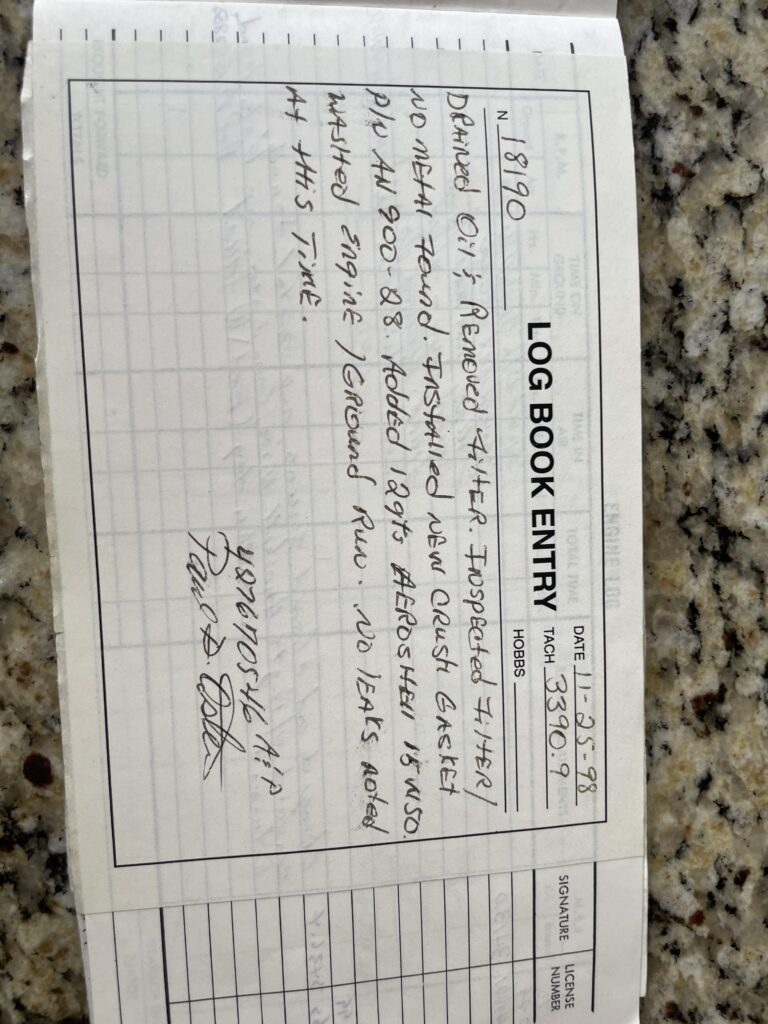 LOG BOOK ENTRY
DATE 11-25-98
N 18190
TACH 3390.9
HOBBS
DRAINED OIL & REMOVED FILTER. INSPECTED FILTER/
NO METAL FOUND. INSTALLED NEW CRUSH GASKET
P/N AN 900-28. Added 12qts AEROSHELL 15W50.
WASHED ENGINE / GROUND RUN. NO LEAKS NOTED
AT THIS TIME.
487670546 A&P
SIGNATURE
LICENSE
NUMBER
ENGINE LOG
R.P.M.
TIME ON
GROUND
TIME IN
AIR
TOTAL TIME